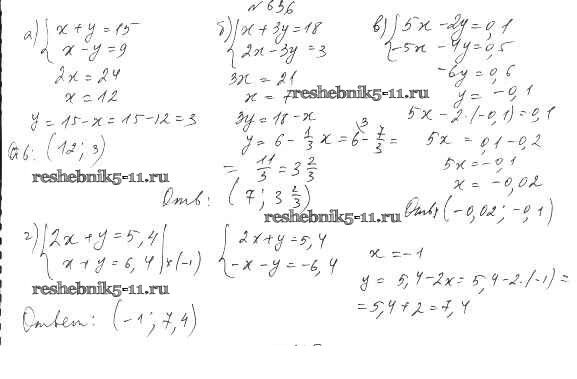 № 636
а) { x + y = 15
x - y = 9
2x = 24
x = 12
y = 15 - x = 15 - 12 = 3
Отв: (12; 3)
reshebnik5-11.ru
б) { x + 3y = 18
2x - 3y = 3
3x = 21
x = 7
3y = 18 - x
y = 6 - 1/3 x = 6 - 7/3 =
= 11/3 = 3 2/3
Отв: (7; 3 2/3)
reshebnik5-11.ru
в) { 5x - 2y = 0,1
-5x - 4y = 0,5
-6y = 0,6
y = -0,1
5x - 2·(-0,1) = 0,1
5x = 0,1 - 0,2
5x = -0,1
x = -0,02
Отв: (-0,02; -0,1)
reshebnik5-11.ru
г) { 2x + y = 5,4
x + y = 6,4 | ×(-1)
{ 2x + y = 5,4
-x - y = -6,4
x = -1
y = 5,4 - 2x = 5,4 - 2·(-1) =
= 5,4 + 2 = 7,4
reshebnik5-11.ru
Ответ: (-1; 7,4)